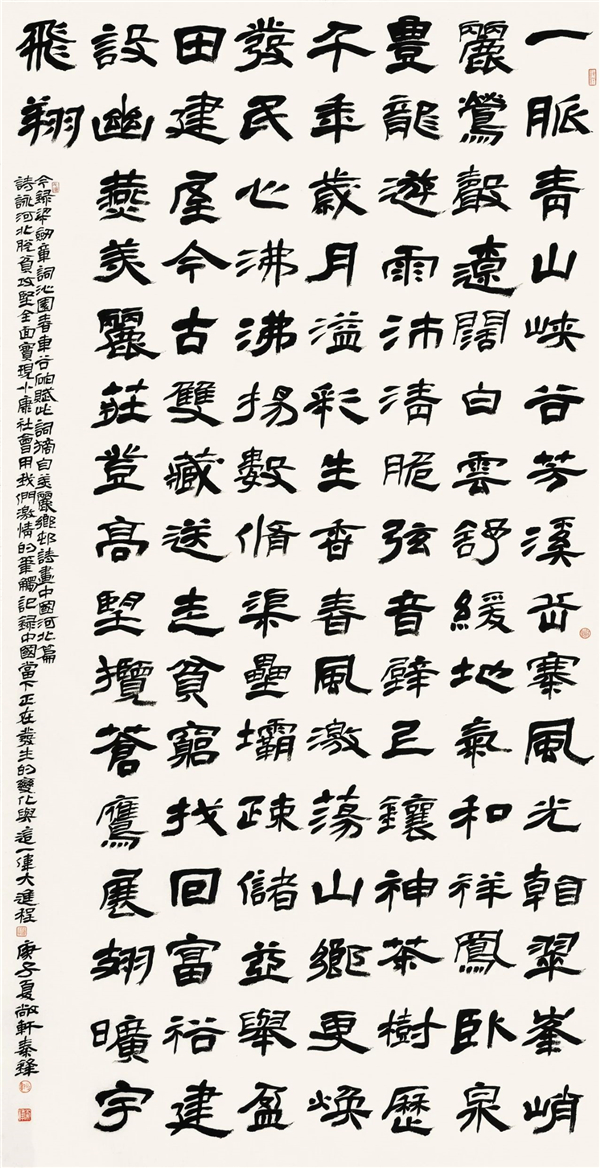 一脈青山峽谷芳溪岳寨風光翠峯峭
麗鶯聲遼闊白雲舒緩地氣和祥鳳臥泉
豊龍遊雨沛清脆弦音壁上鑲神茶樹歷
千年歲月溢彩生香春風激蕩山鄉更煥
發民心沸沸揚數脩渠壘壩疎儲並舉盈
田建屋今古雙藏送走貧窮找回富裕建
設幽燕美麗莊登高望攬蒼鷹展翅曠宇
飛翔
今録梁劍章詞沁園春車谷砲賦此詞摘自美麗鄉邨詩畫中國河北篇
詩詠河北脫貧攻堅全面實現小康社會用我們激情的筆觸記錄中國當下正在發生的變化與這一偉大進程 庚子夏敞軒秦鋒